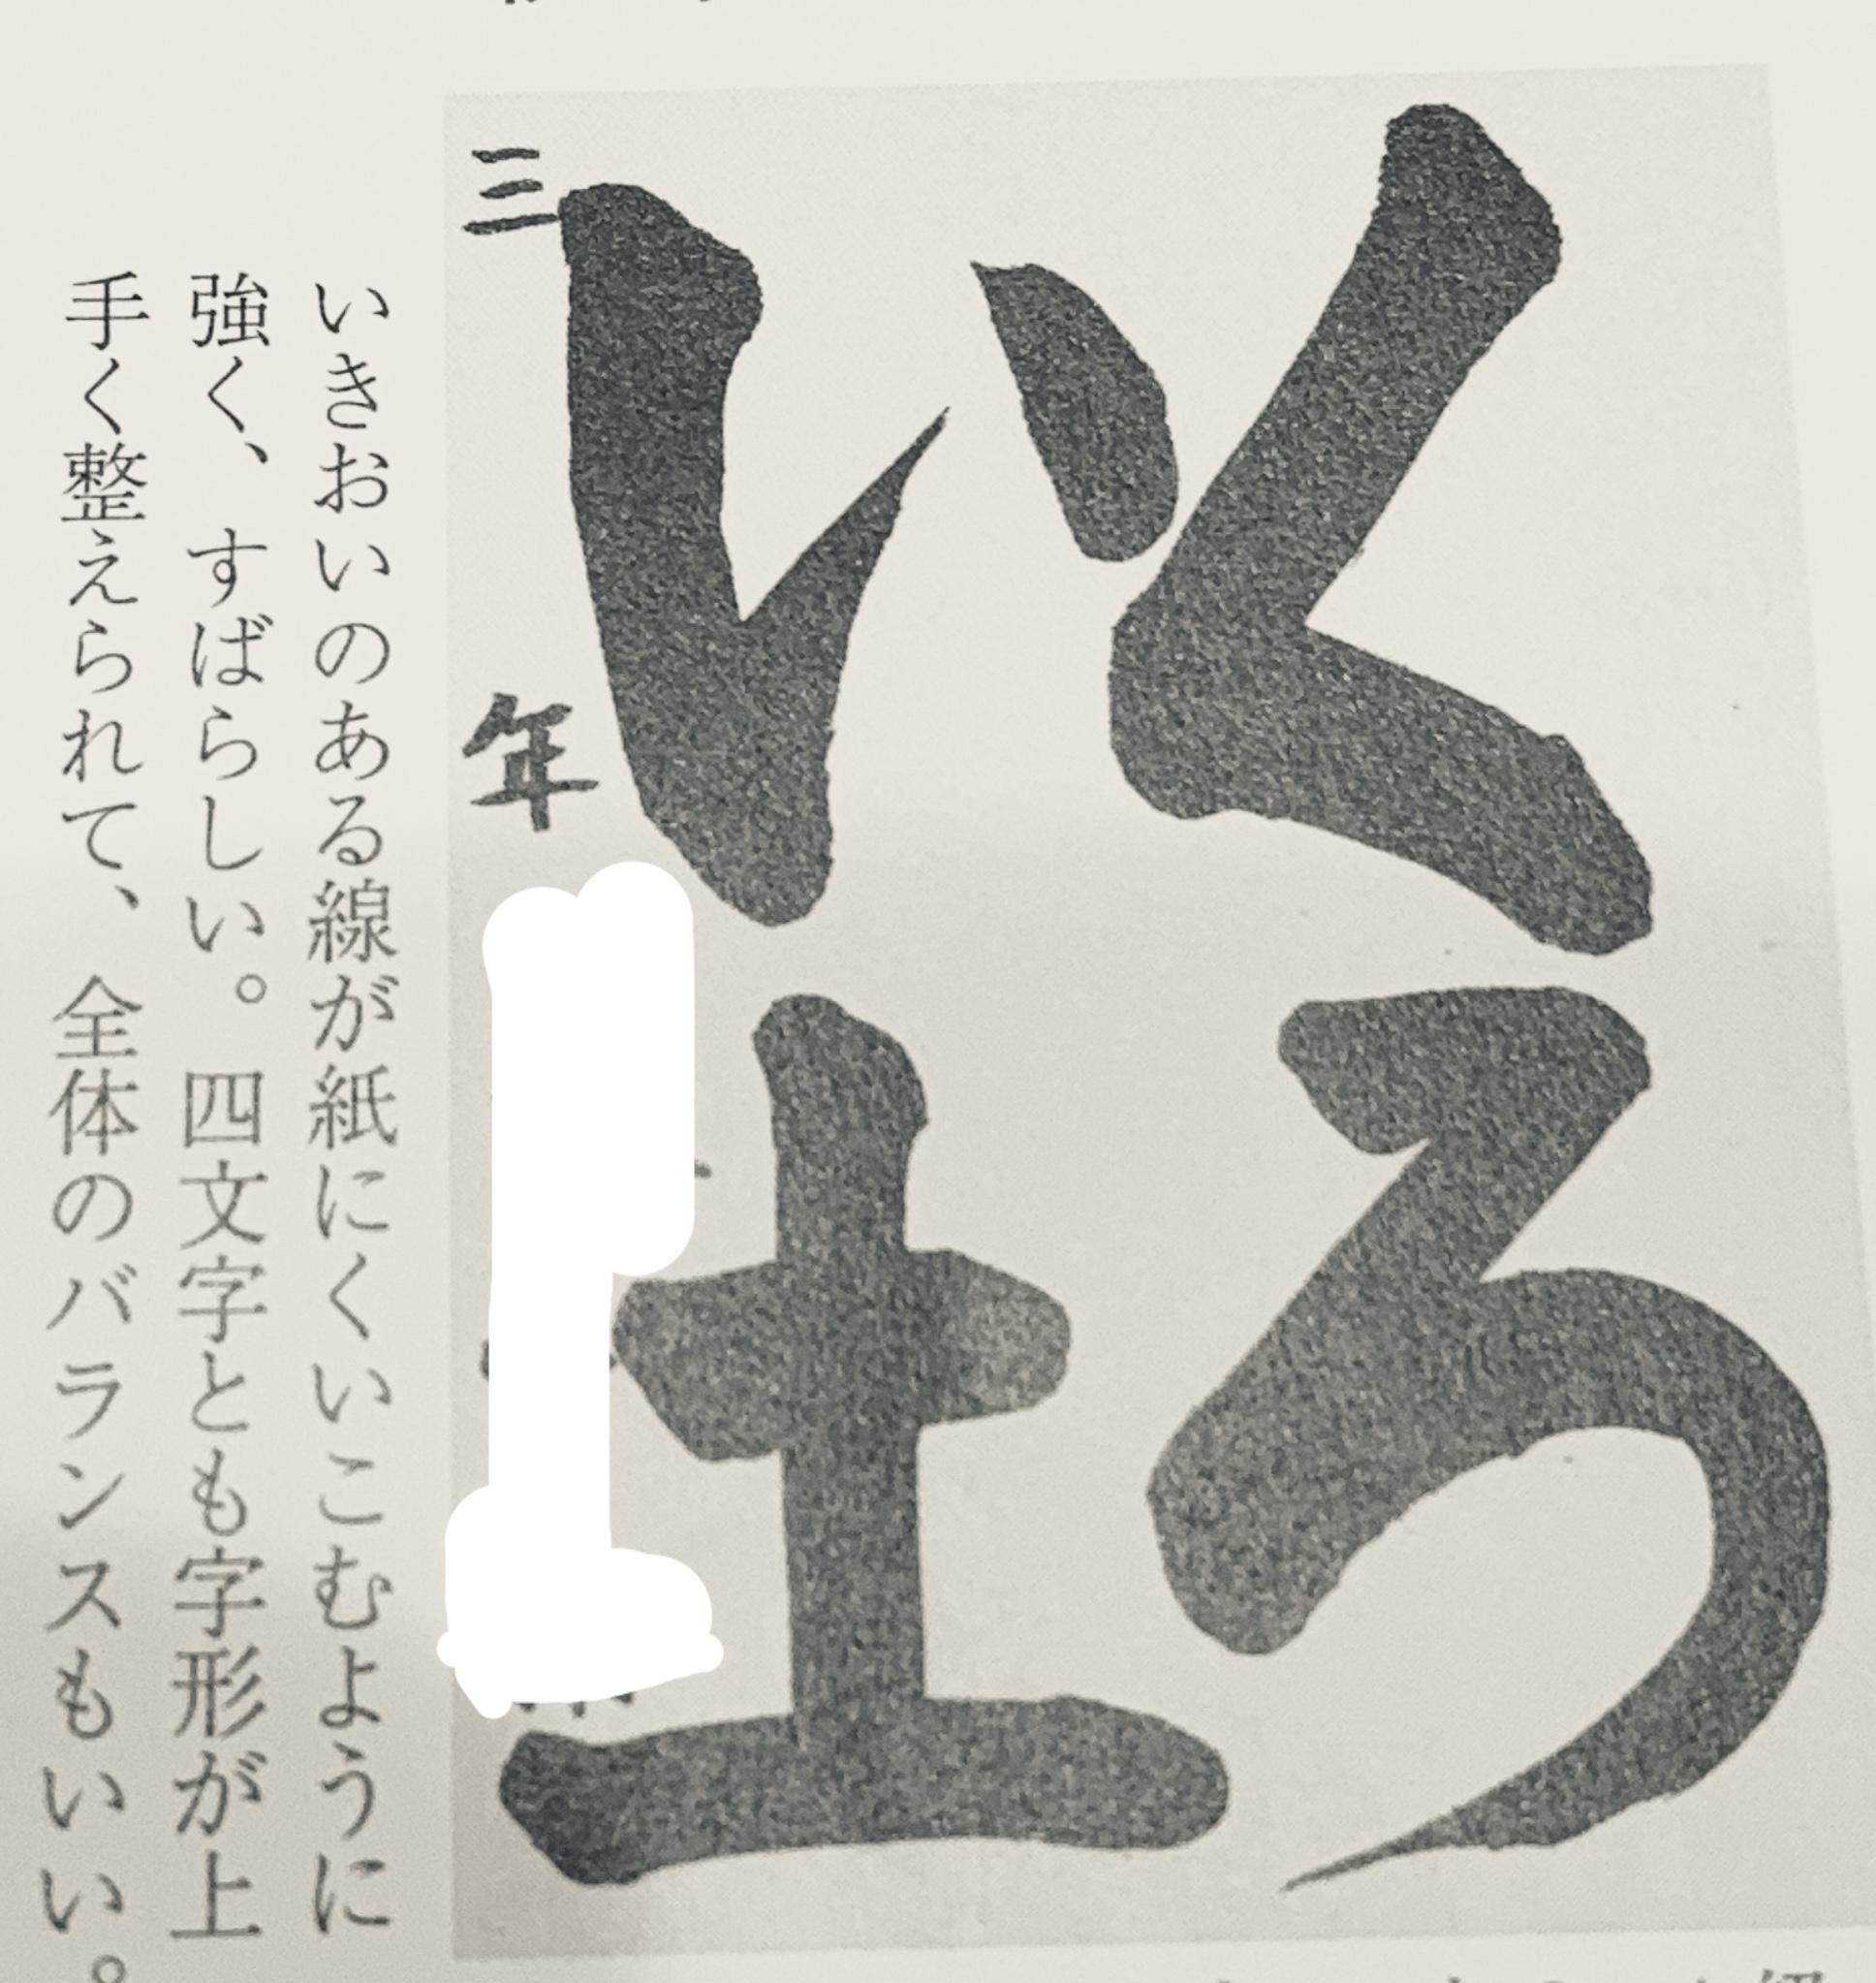 くろ
い土
三年
いきおいのある線が紙にくいこむように
強く、すばらしい。四文字とも字形が上
手く整えられて、全体のバランスもいい。